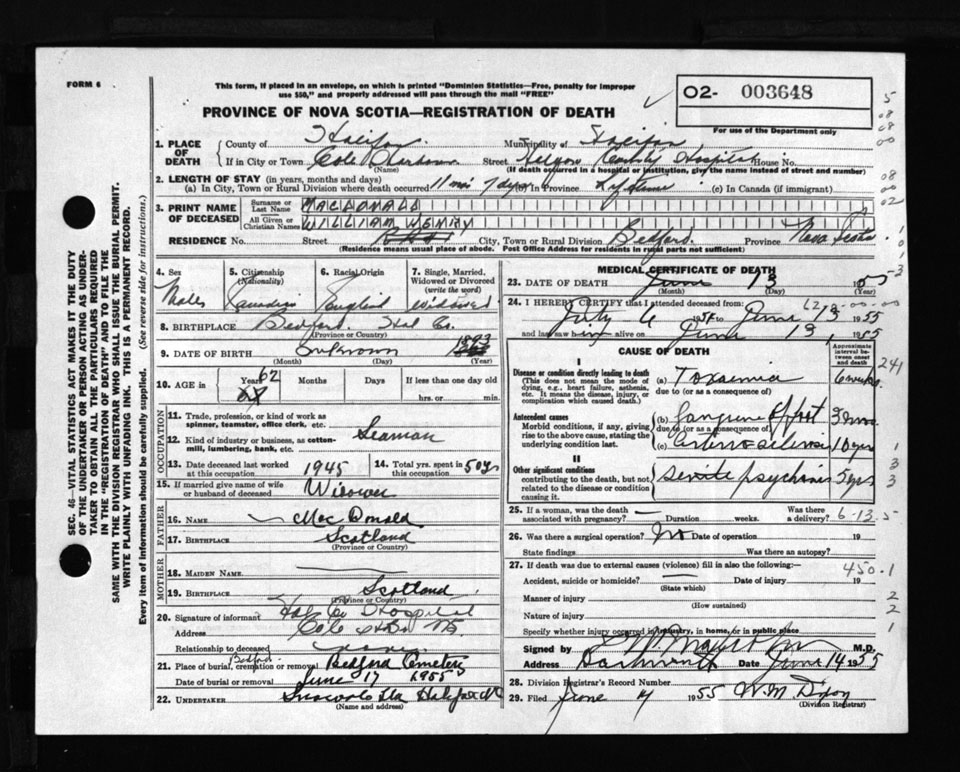 FORM 6
This form, if placed in an envelope, on which is printed "Dominion Statistics—Free, penalty for improper
use $50," and properly addressed will pass through the mail "FREE"
O2- 003648
5
PROVINCE OF NOVA SCOTIA—REGISTRATION OF DEATH
For use of the Department only
08
08
00
1. PLACE OF DEATH
County of Halifax Municipality of Halifax
If in City or Town Cole Harbour Street Halifax County Hospital House No.
(Name) (If death occurred in a hospital or institution, give the name instead of street and number)
2. LENGTH OF STAY (in years, months and days)
(a) In City, Town or Rural Division where death occurred 11 mos 7 dys (b) in Province Lifetime (c) In Canada (if immigrant)
08
00
02
3. PRINT NAME OF DECEASED
Surname or Last Name MACDONALD
All Given or Christian Names WILLIAM HENRY
RESIDENCE No. Street City, Town or Rural Division Bedford Province Nova Scotia
(Residence means usual place of abode. Post Office Address for residents in rural parts not sufficient)
4. Sex Male
5. Citizenship (Nationality) Canadian
6. Racial Origin English
7. Single, Married, Widowed or Divorced (write the word) Widowed
8. BIRTHPLACE Bedford Hal Co.
(Province or Country)
9. DATE OF BIRTH Unknown 1893
(Month) (Day) (Year)
10. AGE in Years 62 Months Days If less than one day old
hrs. or min.
OCCUPATION
11. Trade, profession, or kind of work as
spinner, teamster, office clerk, etc.
12. Kind of industry or business, as cotton-
mill, lumbering, bank, etc.
Seaman
13. Date deceased last worked
at this occupation 1945
14. Total yrs. spent in
this occupation 50 yrs
15. If married give name of wife
or husband of deceased Widower
FATHER
16. NAME MacDonald
17. BIRTHPLACE Scotland
(Province or Country)
MOTHER
18. MAIDEN NAME
19. BIRTHPLACE Scotland
(Province or Country)
20. Signature of informant Hal Co Hospital
Address Cole Hbr NS
Relationship to deceased
21. Place of burial, cremation or removal Bedford Bedford Cemetery
Date of burial or removal June 17 1955
22. UNDERTAKER Snow & Co Ltd Halifax NS
(Name and address)
MEDICAL CERTIFICATE OF DEATH
23. DATE OF DEATH June 13 1955
(Month) (Day)
24. I HEREBY CERTIFY that I attended deceased from:
July 6 1954 to June 13 1955
and last saw him alive on June 13 1955
CAUSE OF DEATH
Approximate interval between onset and death
I
Disease or condition directly leading to death
(This does not mean the mode of
dying, e.g., heart failure, asthenia,
etc. It means the disease, injury, or
complication which caused death.)
(a) Toxaemia 6 weeks
due to (or as a consequence of)
241
Antecedent causes
Morbid conditions, if any, giving
rise to the above cause, stating the
underlying condition last.
(b) Gangrene R foot 3 mos
due to (or as a consequence of)
(c) Arteriosclerosis 10 yrs
II
Other significant conditions
contributing to the death, but not
related to the disease or condition
causing it.
Senile psychosis 5 yrs
25. If a woman, was the death
associated with pregnancy? Duration weeks. Was there
a delivery?
6-13-5
26. Was there a surgical operation? No Date of operation 19
State findings Was there an autopsy?
27. If death was due to external causes (violence) fill in also the following:—
450-1
Accident, suicide or homicide? Date of injury 19
(State which)
Manner of injury
(How sustained)
Nature of injury
Specify whether injury occurred in industry, in home, or in public place
Signed by M.D.
Address Dartmouth Date June 14 1955
28. Division Registrar's Record Number
29. Filed June 14 1955 W.M. Dixon
(Division Registrar)
SEC. 46—VITAL STATISTICS ACT MAKES IT THE DUTY
OF THE UNDERTAKER OR PERSON ACTING AS UNDER-
TAKER TO OBTAIN ALL THE PARTICULARS REQUIRED
IN THE "REGISTRATION OF DEATH" AND TO FILE THE
SAME WITH THE DIVISION REGISTRAR WHO SHALL ISSUE THE BURIAL PERMIT.
WRITE PLAINLY WITH UNFADING INK. THIS IS A PERMANENT RECORD.
Every item of information should be carefully supplied. (See reverse side for instructions.)